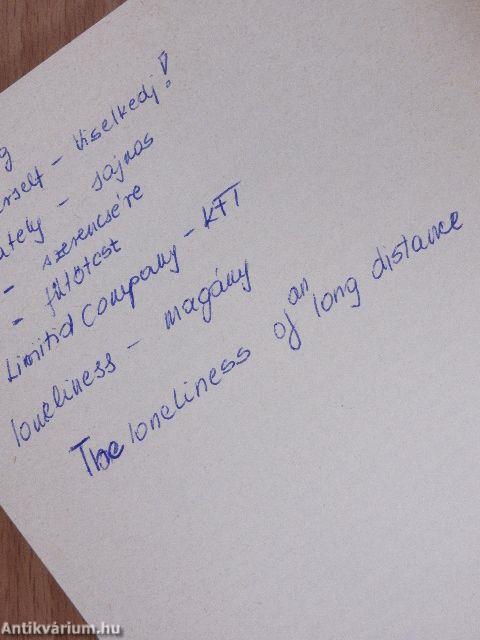 g
erself - Viselkedj!
ately - sajnos
- szerencsére
- fűtőtest
Limitid Company - KFT
loneliness - magány
The loneliness of an long distance
Antikvárium.hu